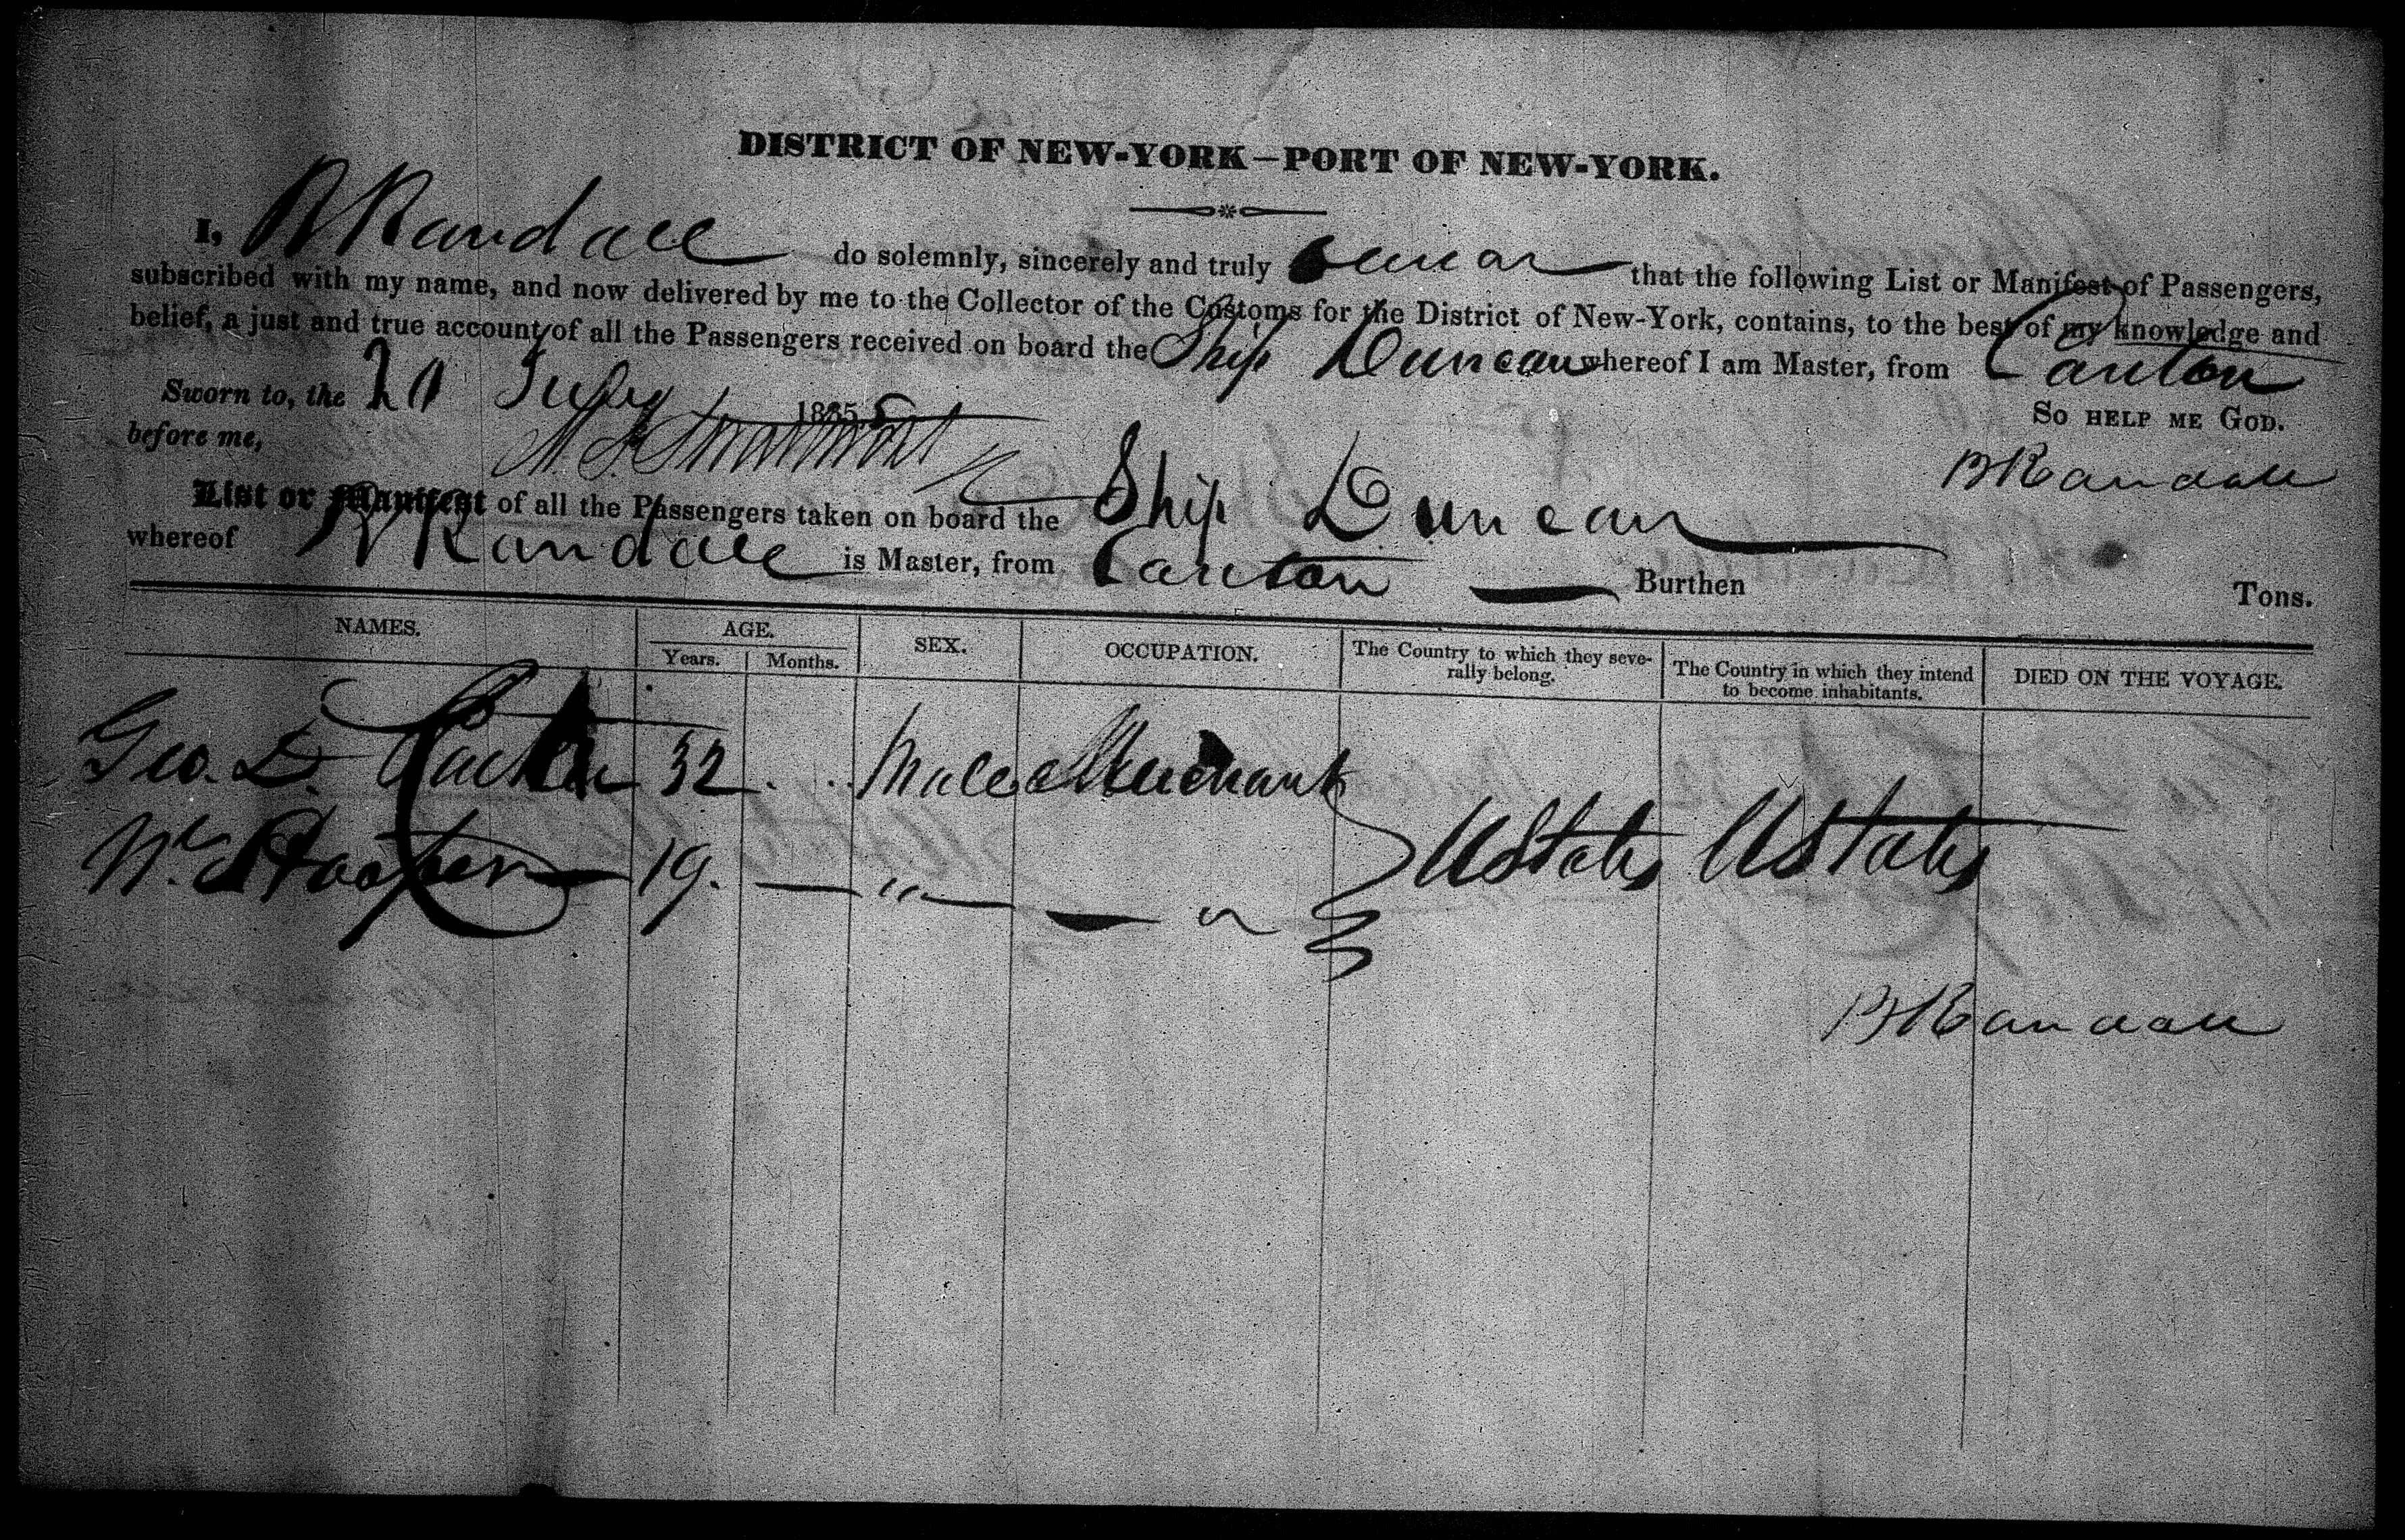 DISTRICT OF NEW-YORK—PORT OF NEW-YORK.
I, B Randall do solemnly, sincerely and truly swear that the following List or Manifest of Passengers,
subscribed with my name, and now delivered by me to the Collector of the Customs for the District of New-York, contains, to the best of my knowledge and
belief, a just and true account of all the Passengers received on board the Ship Duncan whereof I am Master, from Canton
Sworn to, the 20 July 1835
So help me God.
before me,
B Randall
List or Manifest of all the Passengers taken on board the Ship Duncan
whereof B Randall is Master, from Canton — Burthen Tons.
NAMES. AGE. SEX. OCCUPATION. The Country to which they seve- The Country in which they intend DIED ON THE VOYAGE.
Years. Months. rally belong. to become inhabitants.
Geo. D. 32 . . Male Merchant
Wm Hooper 19. — " — " UStates UStates
B Randall